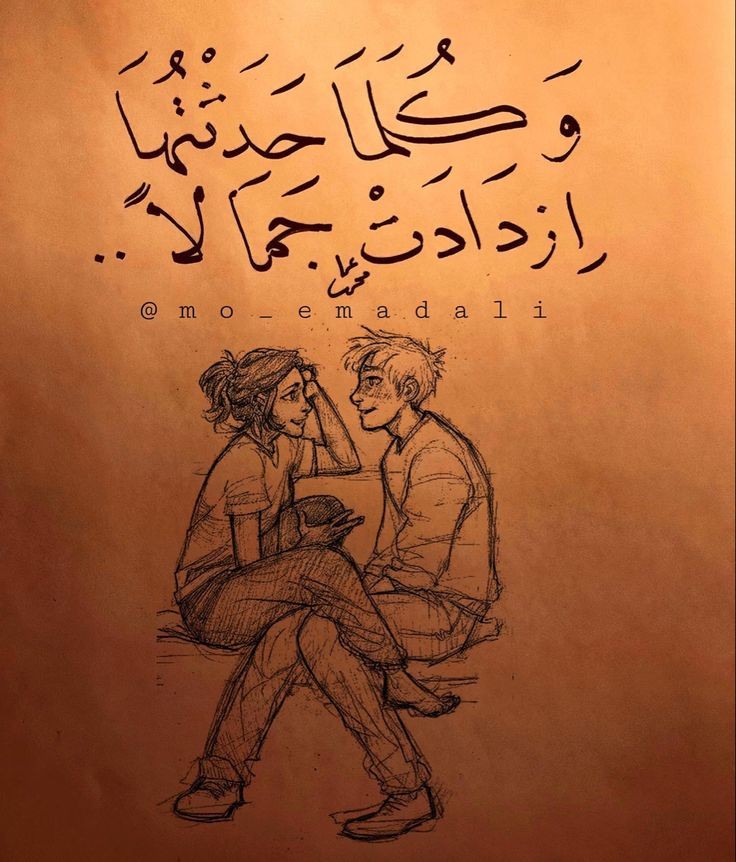 وَ كُلَمَا حَدَثْتُهَا
اِزدَادَتْ جَمَالاً ..
@mo_emadali